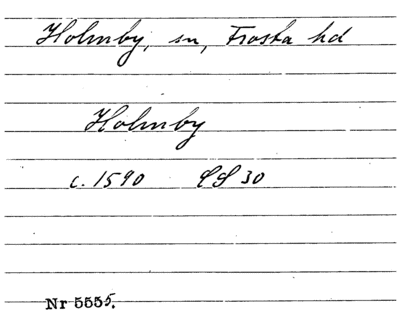 Holmby, sn, Frosta hd
Holmby
c. 1590 LS 30
Nr 5555.